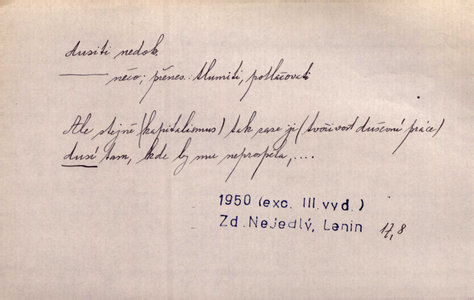 dusiti nedok.
něco; přenes. tlumiti, potlačovati
Ale stejně (kapitalismus) tak zase ji (tvořivost duševní práce)
dusí tam, kde by mu neprospěla, ....
1950 (exc. III. vyd.)
Zd. Nejedlý, Lenin 17,8